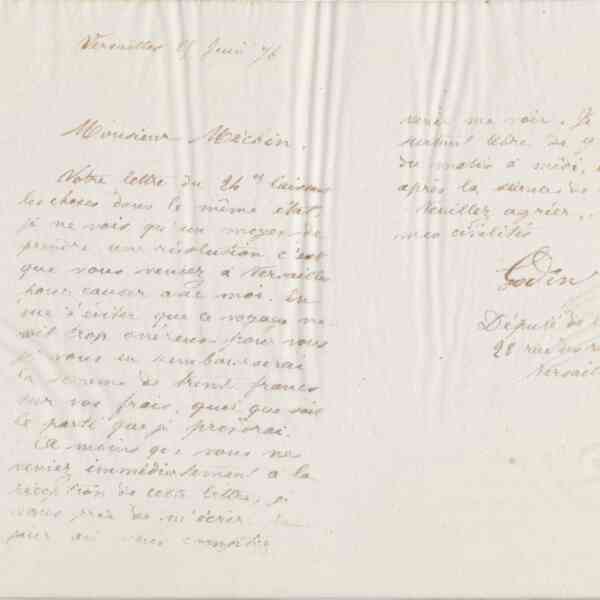 Versailles 25 Juin 76
Monsieur Méchin.
Votre lettre du 24 ct laissant
les choses dans le même état,
je ne vois qu'un moyen de
prendre une résolution c'est
que vous veniez à Versailles
pour causer avec moi. En
vue d'éviter que ce voyage ne
soit trop onéreux pour vous
je vous en rembourserai
la somme de trente francs
sur vos frais, quoi que soit
le parti que je prendrai.
A moins que vous ne
veniez immédiatement à la
réception de cette lettre, je
vous prie de m'écrire le
jour où vous comptez
venir me voir. Je
surtout libre de
du matin à midi,
après la séance de
Veuillez agréer,
mes civilités
Godin
Député de l
28 rue
Versail